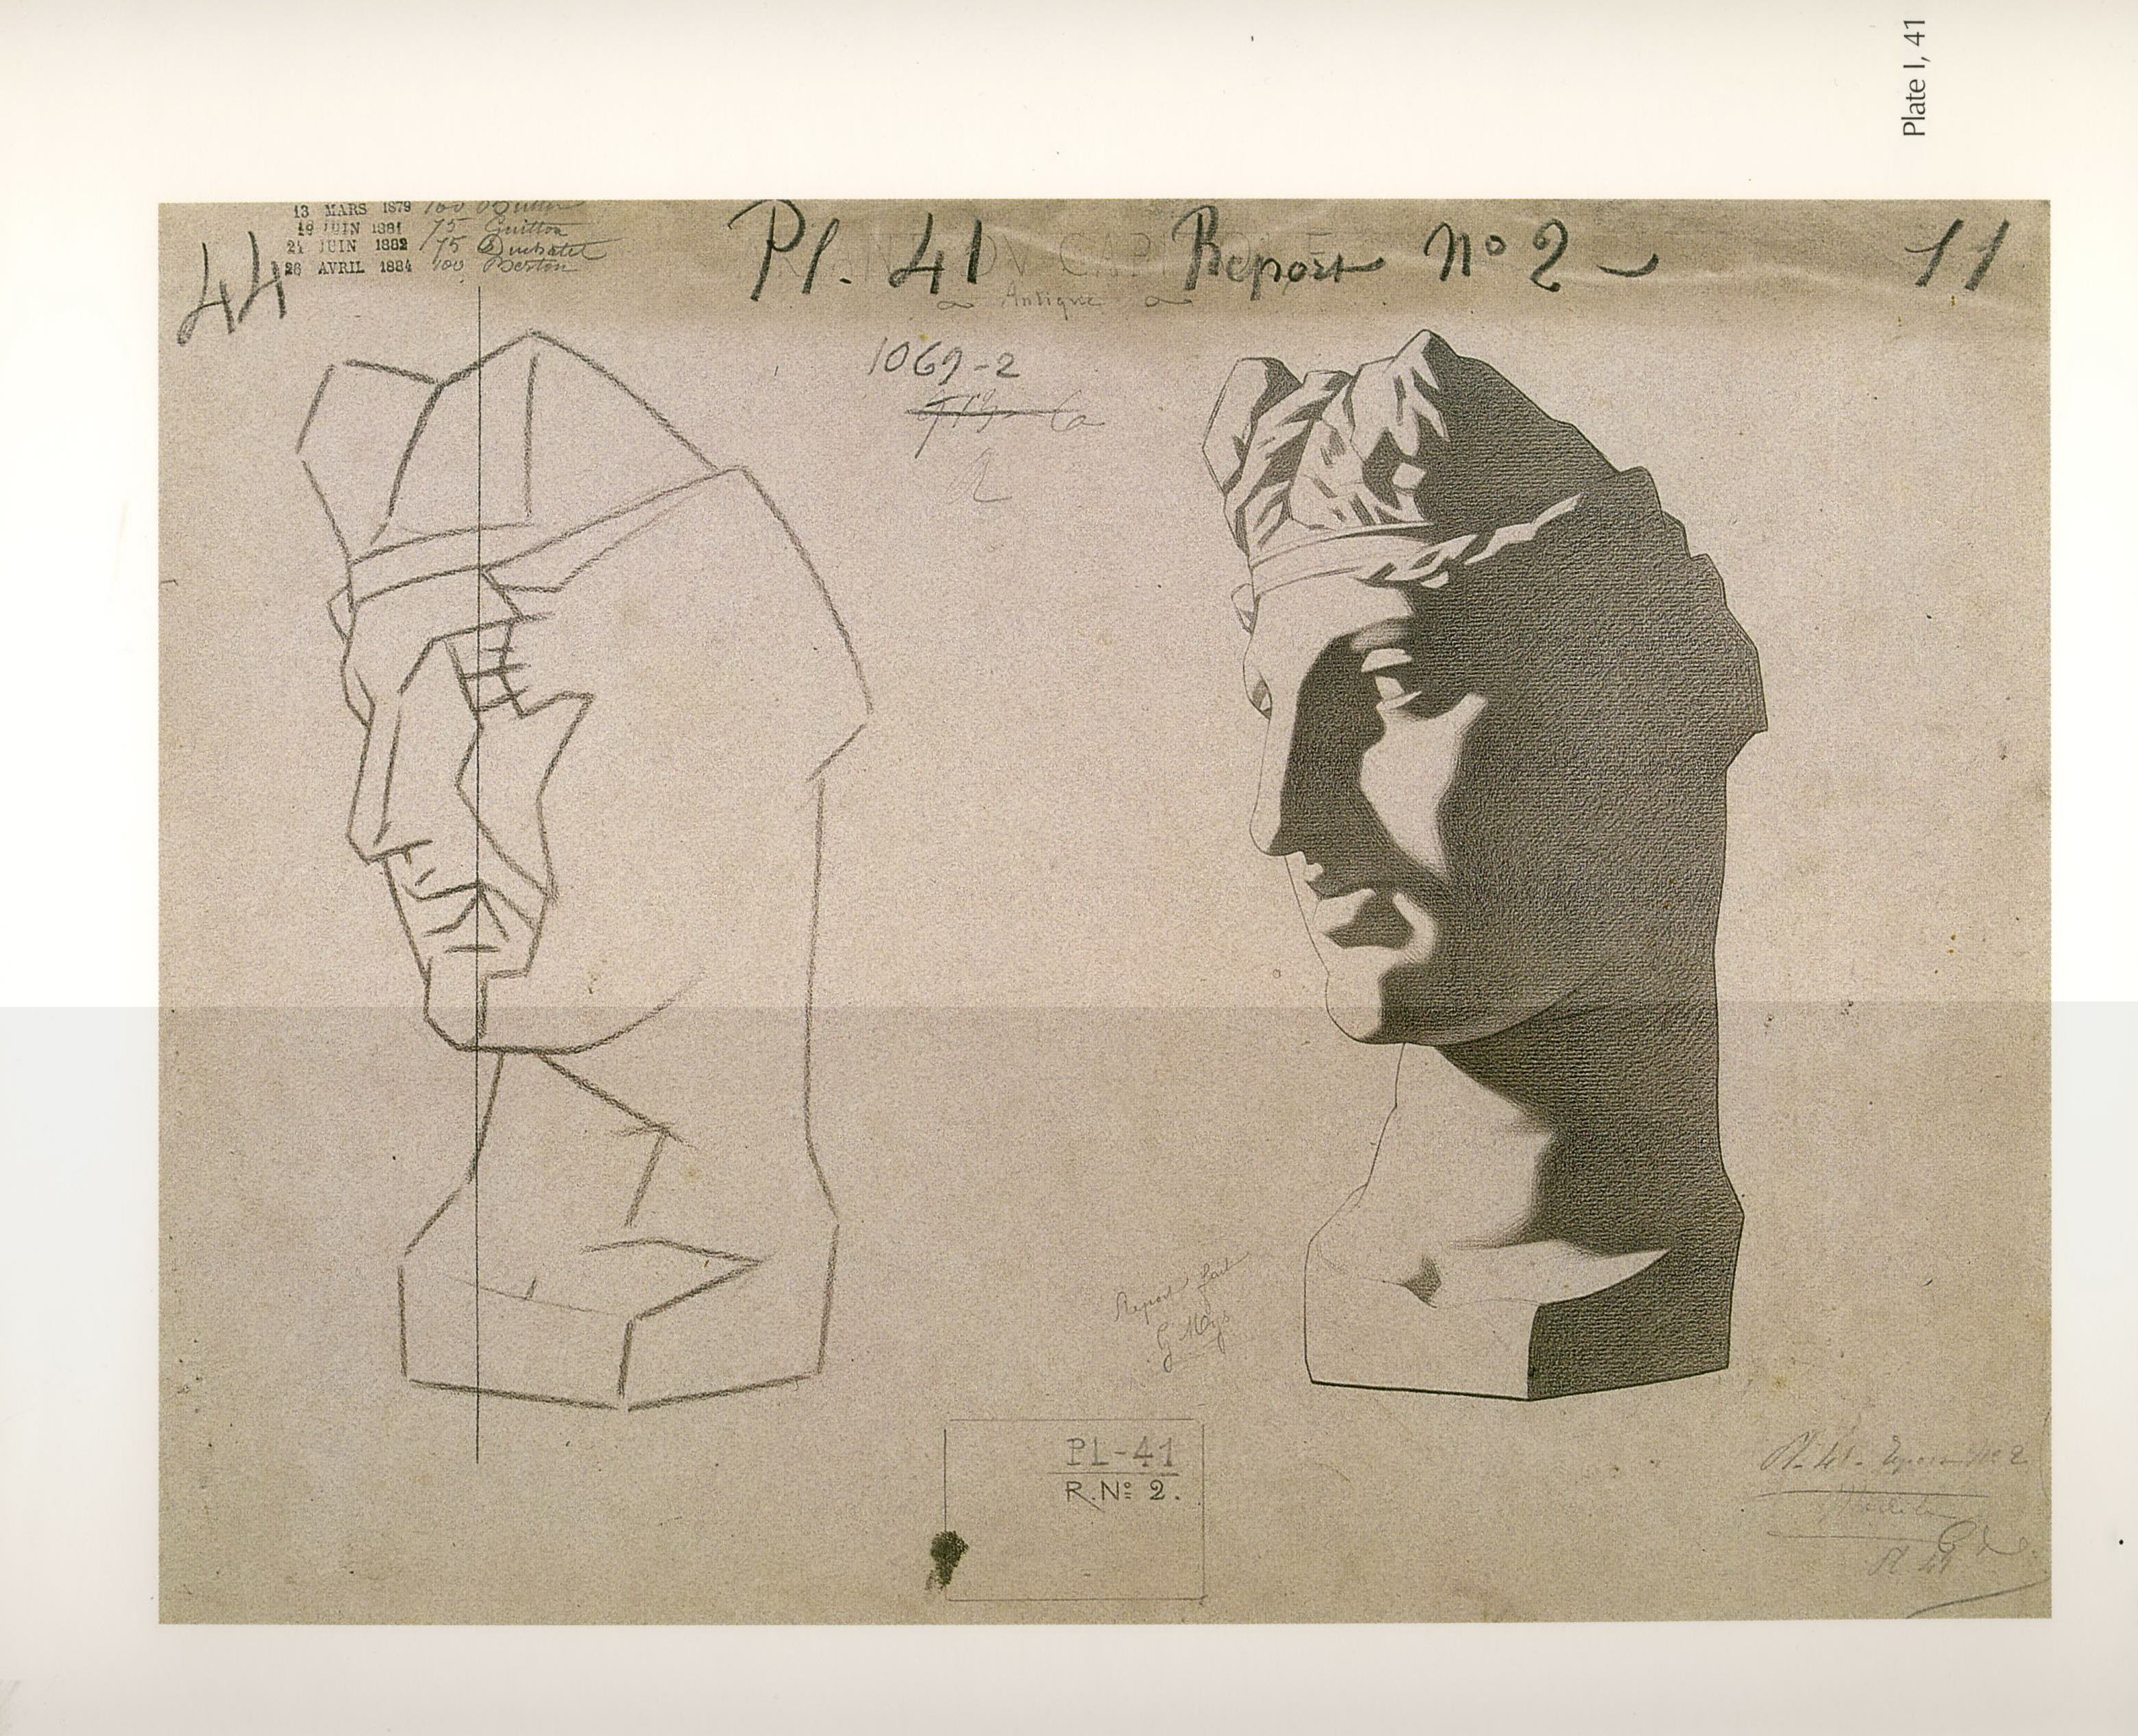 Plate I, 41
13 MARS 1879 100
18 JUIN 1881 75 Guitton
21 JUIN 1882 75 Duchatel
26 AVRIL 1884 100 Berton
44
Pl. 41 Report nº 2 11
DU CAPITOLE
Antique
1069-2
2
Report fait
PL-41
R.Nº 2.
Pl. 41 - Report Nº 2
Pl 41